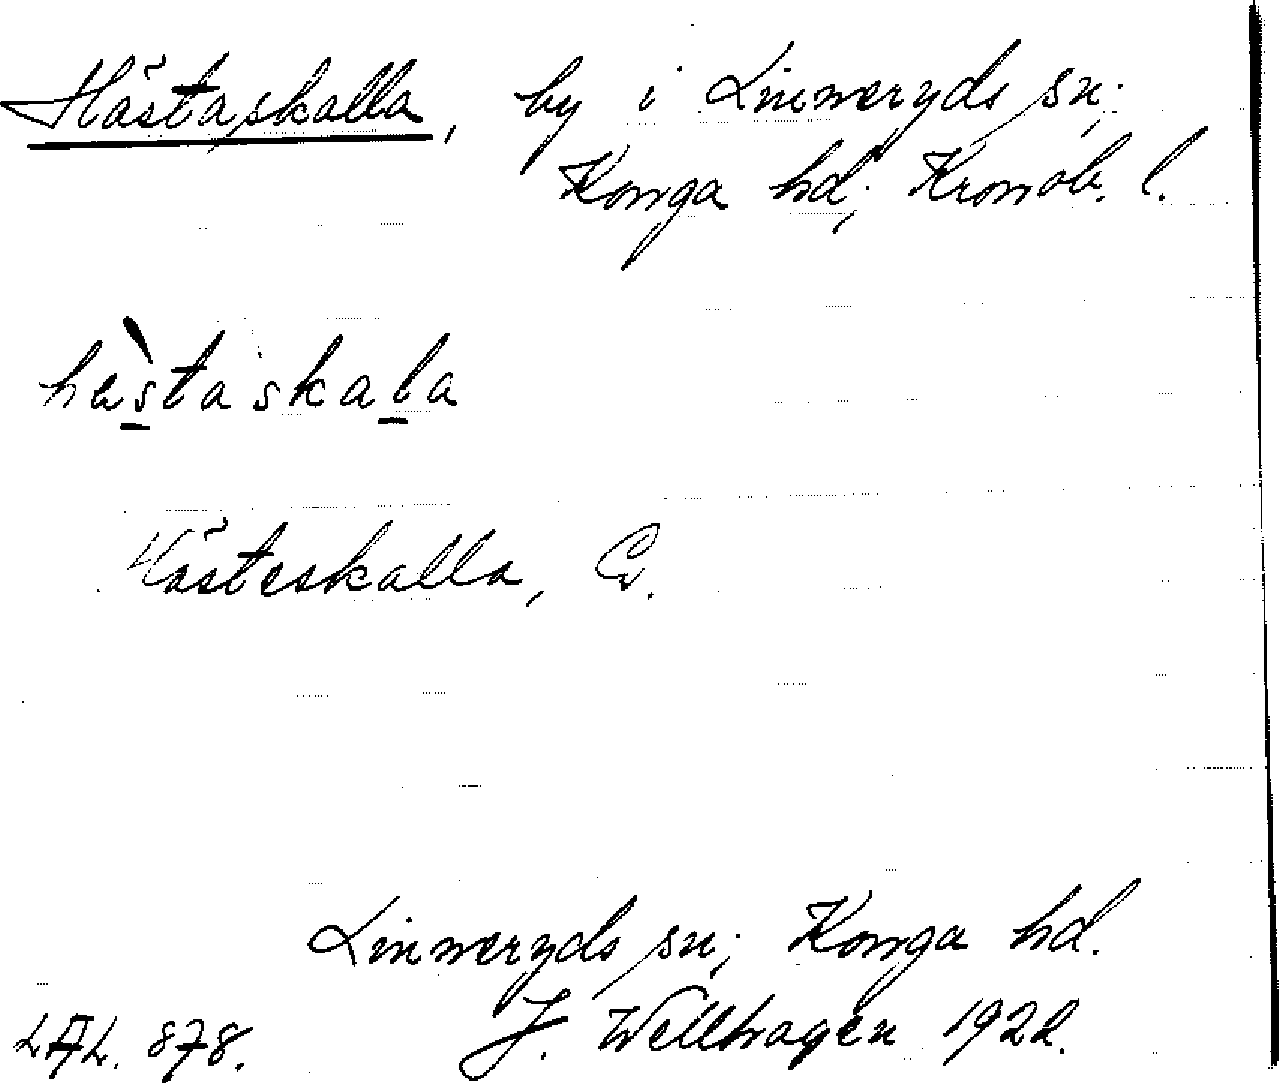 Hästaskalla, by i Linneryds sn;
Konga hd; Kronob. l.
hästaskala
Hästeskalla, C.
Linneryds sn; Konga hd.
LAL. 878. J. Wellhagen 1922.